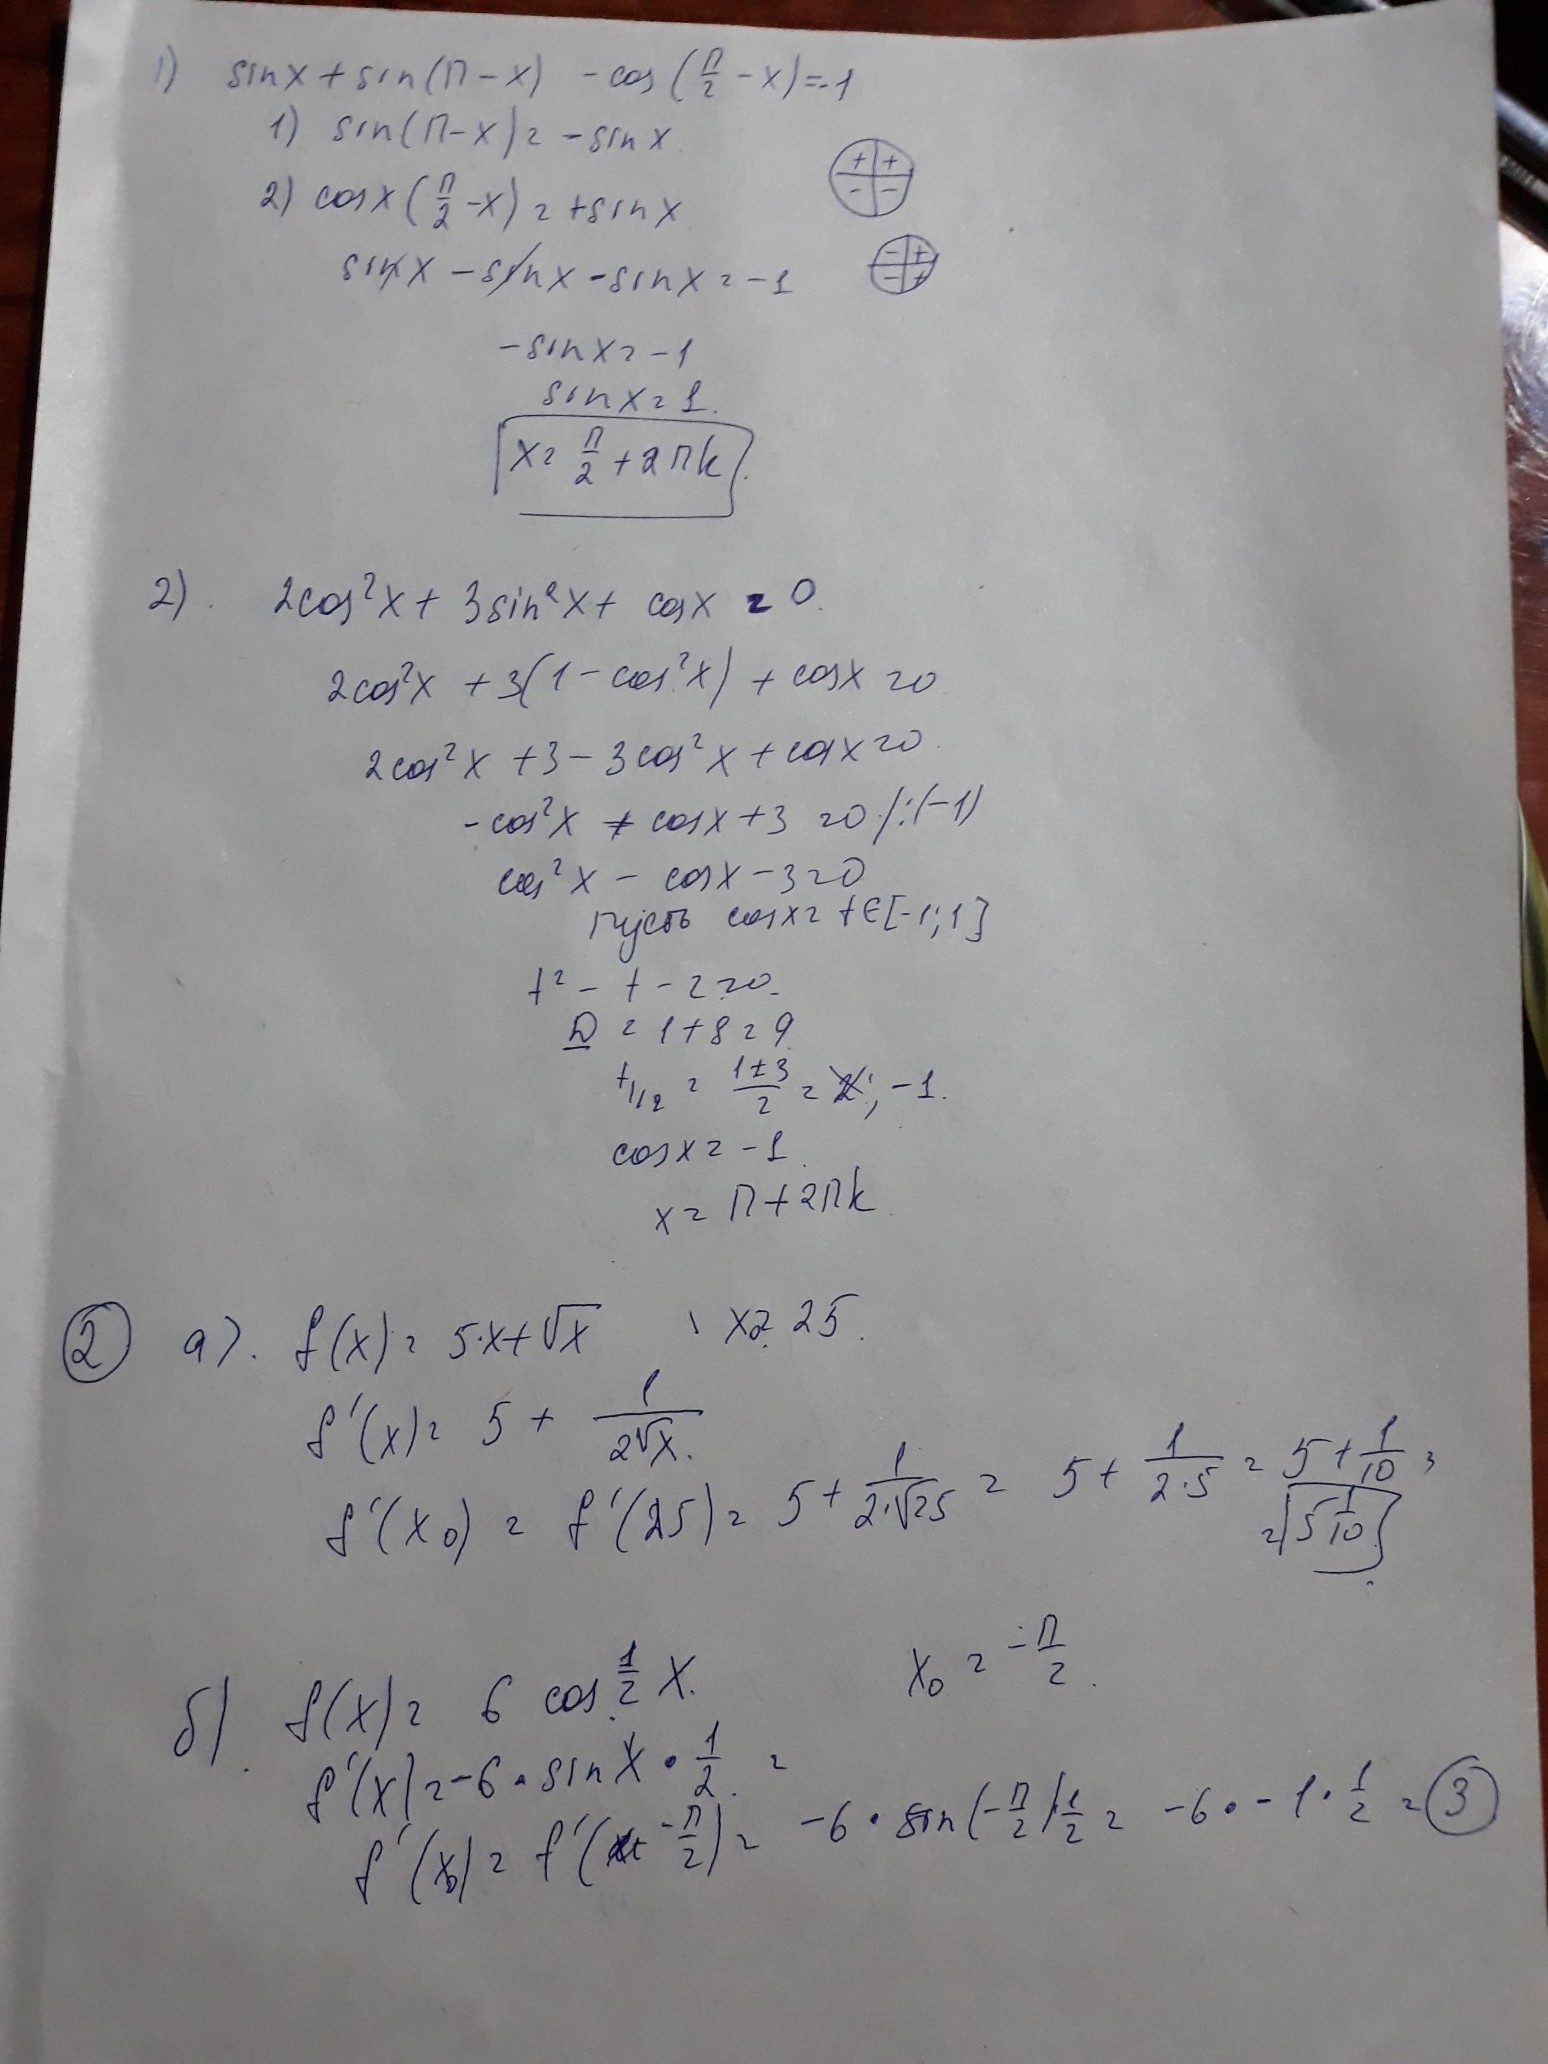 1) sinx + sin(П - x) - cos(П/2 - x) = -1
1) sin(П - x) = -sinx
2) cosx(П/2 - x) = +sinx
sinx - sinx - sinx = -1
-sinx = -1
sinx = 1.
x = П/2 + 2Пk
2). 2cos²x + 3sin²x + cosx = 0.
2cos²x + 3(1 - cos²x) + cosx = 0
2cos²x + 3 - 3cos²x + cosx = 0.
-cos²x + cosx + 3 = 0 /:(-1)
cos²x - cosx - 3 = 0
пусть cosx = t ∈ [-1; 1]
t² - t - 2 = 0.
D = 1 + 8 = 9
t₁/₂ = (1 ± 3)/2 = 2; -1.
cosx = -1.
x = П + 2Пk
② а). f(x) = 5·x + √x , x = 25.
f'(x) = 5 + 1/(2√x).
f'(x₀) = f'(25) = 5 + 1/(2·√25) = 5 + 1/(2·5) = 5 + 1/10 =
= 5 1/10
б). f(x) = 6 cos 1/2 x. x₀ = -П/2.
f'(x) = -6 · sin x · 1/2 =
f'(x₀) = f'(-П/2) = -6 · sin(-П/2)·1/2 = -6 · -1 · 1/2 = 3